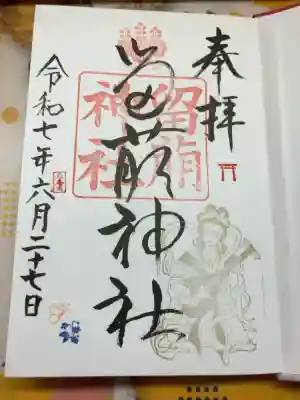 奉拝
留萌神社
留萌
神社
令和七年六月二十七日